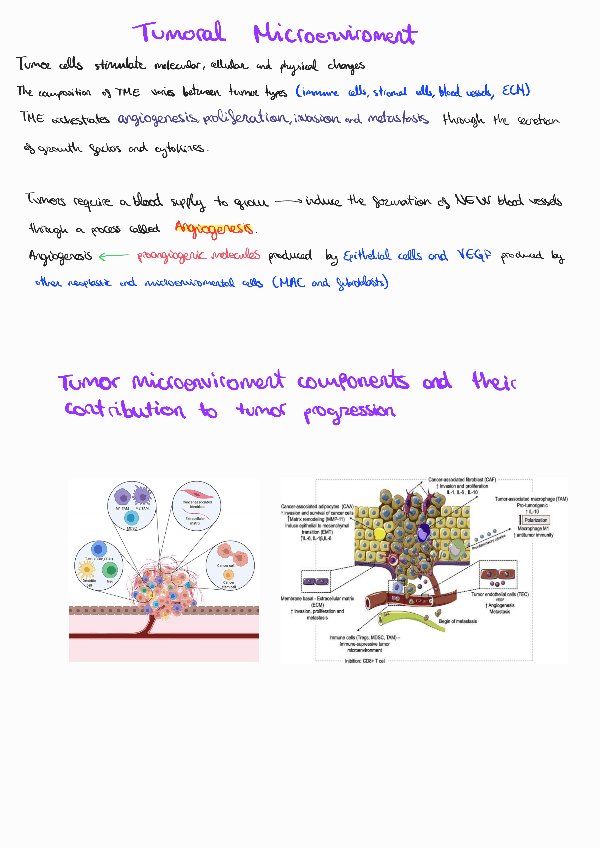 Tumoral Microenviroment
Tumor cells stimulate molecular, cellular and physical changes
The composition of TME varies between tumor types (immune cells, stromal cells, blood vessels, ECM)
TME orchestrates angiogenesis, proliferation, invasion and metastasis through the secretion
of growth factors and cytokines.
Tumors require a blood supply to grow → induce the formation of NEW blood vessels
through a process called Angiogenesis.
Angiogenesis ← proangiogenic molecules produced by Epithelial cells and VEGF produced by
other neoplastic and microenviromental cells (MAC and fibroblasts)
Tumor microenviroment components and their
contribution to tumor progression
M1 TAM M2 TAM
MDSC
Cancer associated
fibroblast
Extracellular
matrix
Dendritic
cell
Cancer cell
Cancer
stem cell
Cancer-associated fibroblast (CAF)
↑ Invasion and proliferation
IL-1, IL-6, IL-10
Cancer-associated adipocytes (CAA)
↑ Invasion and survival of cancer cells
↑Matrix remodeling (MMP-11)
Induce epithelial to mesenchymal
transition (EMT)
↑IL-6, IL-1β,IL-8
Tumor-associated macrophage (TAM)
Pro-tumorigenic
↑ IL-10
Polarization
Macrophage M1
↑ antitumor immunity
Membrane basal - Extracellular matrix
(ECM)
↑ Invasion, proliferation and
metastasis
Tumor endothelial cells (TEC)
↑ Angiogenesis
Metastasis
Begin of metastasis
Immune cells (Tregs, MDSC, TAM) –
Immune-supressive tumor
microenvironment
Inibition: CD8+ T cell